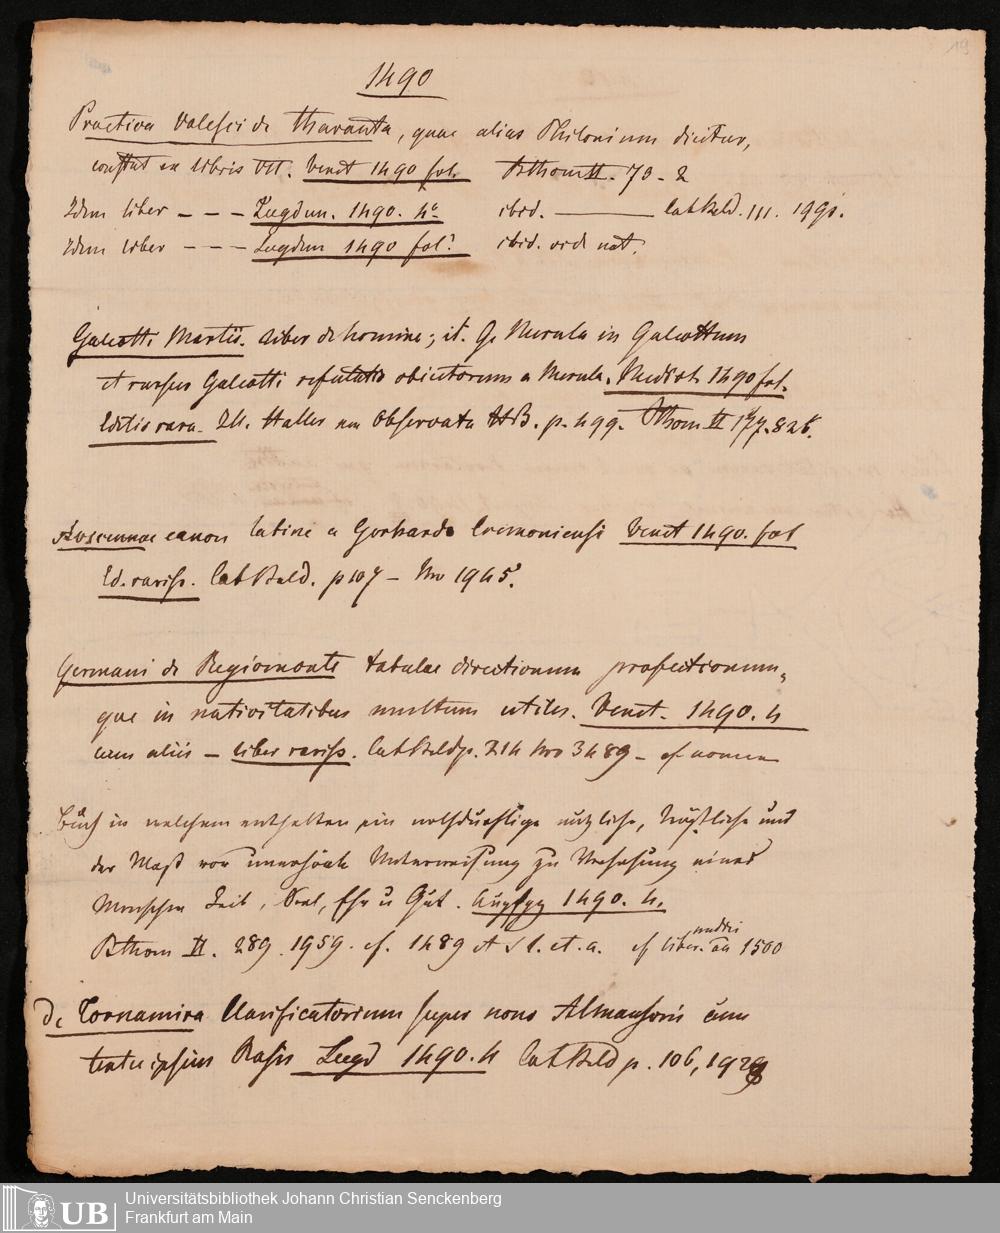 19
1490
Practica Valesci de Tharanta, quae alias Philonium dicitur,
constat ex libris VII. Venet 1490 fol. Bthom II. 73 - 2
Idem liber - - - Lugdun. 1490. 4° ibid. ——— Cat Bald. 111. 1991.
Idem liber - - - Lugdun 1490 fol? ibid.
Galeotti Martii. Liber de homine; it. G. Merula in Galeottum
et rursus Galeotti refutatio obiectorum a Merula. Mediol. 1490 fol.
Editio rara. Observata p. 499. Bthom II 177. 826.
Avicennae canon latine a Gerhardo Cremoniensi Venet 1490. fol
Ed. rariss. Cat Bald. p 107 - Nro 1945.
Germani de Regiomonte tabulae directionum profectionum-
que in nativitatibus multum utiles. Venet. 1490. 4
cum aliis - liber rariss. Cat Bald p. 214 Nro 3489 - cf
Buch in welchem enthalten ein nothdürftige nützliche, tröstliche und
der Maß vor unerhörte Unterweisung zu Versehung eines
Menschen Leib, Seel, Ehr u Gut. Augspg 1490. 4.
Bthom II. 289. 1959. cf. 1489 et s l. et a. cf liber. an 1500
de Tornamira Clarificatorium super nono Almansoris cum
textu ipsius Rasis Lugd 1490. 4 Cat Bald p. 106, 1929
Universitätsbibliothek Johann Christian Senckenberg
Frankfurt am Main
UB